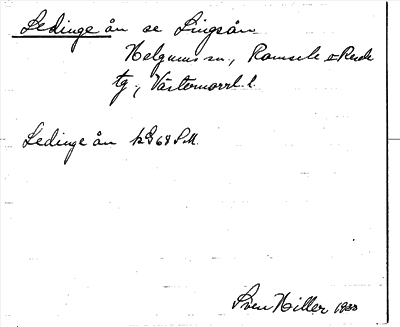 Ledinge ån se Lingsån
Helgums sn, Ramsele o Resele
tg, Västernorrl. l.
Ledinge ån 1868 P.M.
Sven Hiller 1933